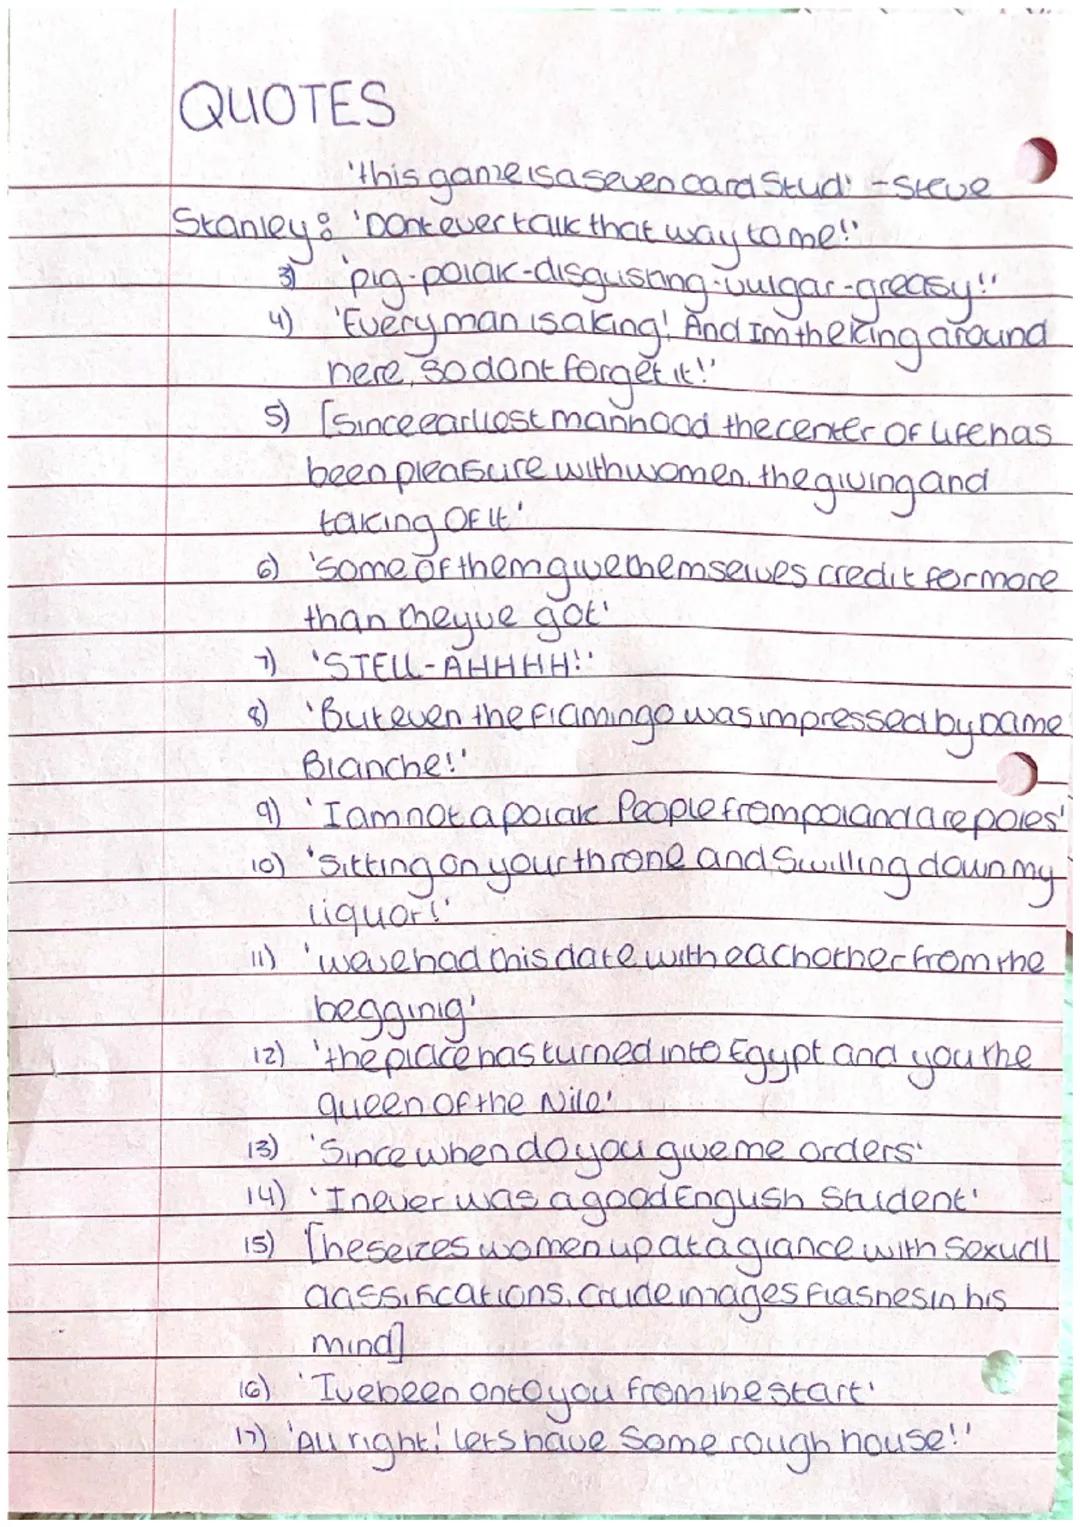 QUOTES
'this game is a seven card stud' - Steve
Stanley: 'Dont ever talk that way to me!'
3) 'pig-polak-disgusting-vulgar-greasy!'
4) 'Every man is a king! And Im the king around
here, so dont forget it!'
5) [Since earliest manhood the center of life has
been pleasure with women, the giving and
taking of it'
6) 'Some of them give themselves credit for more
than theyve got'
7) 'STELL-AHHHH!'
8) 'But even the Flamingo was impressed by Dame
Blanche!'
9) 'I am not a polak People from poland are poles'
10) 'Sitting on your throne and swilling down my
liquor!'
11) 'weve had this date with eachother from the
begginig'
12) 'the place has turned into Egypt and you the
queen of the Nile'
13) 'Since when do you give me orders'
14) 'I never was a good English student'
15) [he seizes women up at a glance with sexual
classifications, crude images flashes in his
mind]
16) 'Ive been onto you from the start'
17) 'All right! lets have some rough house!'